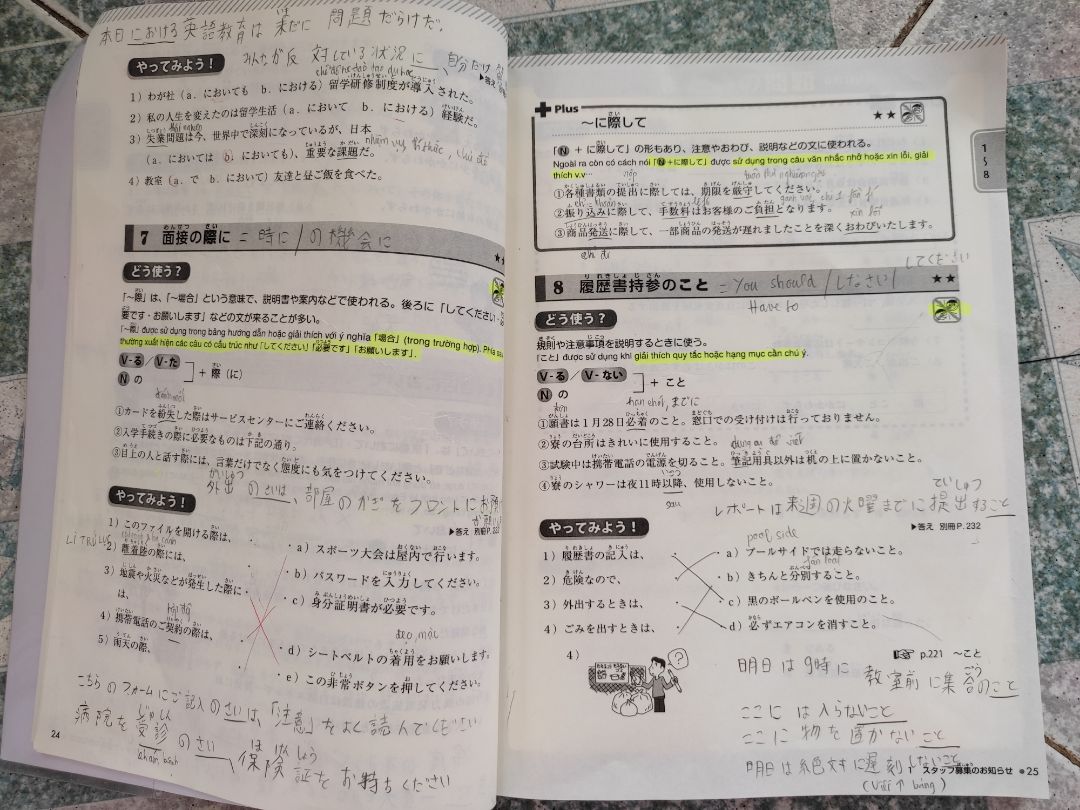 本日における英語教育は未だに 問題だらけだ。
みんなが反対している状況に、自分だけ
やってみよう！
▶答え 別冊
1）わが社（a．においても　b．における）留学研修制度が導入された。
2）私の人生を変えたのは留学生活（a．において　b．における）経験だ。
3）失業問題は今、世界中で深刻になっているが、日本
（a．においては　b．においても）、重要な課題だ。
4）教室（a．で　b．において）友達と昼ご飯を食べた。
7 面接の際に = 時に / の機会に
★
どう使う？
「～際」は、「～場合」という意味で、説明書や案内などで使われる。後ろに「してください・
要です・お願いします」などの文が来ることが多い。
「～際」được sử dụng trong bảng hướng dẫn hoặc giải thích với ý nghĩa「場合」(trong trường hợp). Phía sau
thường xuất hiện các câu có cấu trúc như「してください」「必要です」「お願いします」.
V-る / V-た
Nの
+ 際（に）
①カードを紛失した際はサービスセンターにご連絡ください。
②入学手続きの際に必要なものは下記の通り。
③目上の人と話す際には、言葉だけでなく態度にも気をつけてください。
外出 のさいは 部屋のかぎをフロントにお願
やってみよう！
▶答え 別冊P.232
1）このファイルを開ける際は、
2）離着陸の際には、
3）地震や火災などが発生した際に
は、
4）携帯電話のご契約の際は、
5）雨天の際、
a）スポーツ大会は屋内で行います。
b）パスワードを入力してください。
c）身分証明書が必要です。
đeo, mặc
d）シートベルトの着用をお願いします。
e）この非常ボタンを押してください。
こちらのフォームにご記入のさいは、「注意」をよく読んでください
病院を受診のさい、保険証をお持ちください
khám bệnh
24
Plus
～に際して
★★
「N + に際して」の形もあり、注意やおわび、説明などの文に使われる。
Ngoài ra còn có cách nói「N+に際して」được sử dụng trong câu văn nhắc nhở hoặc xin lỗi, giải
thích v.v…
①各種書類の提出に際しては、期限を厳守してください。
②振り込みに際して、手数料はお客様のご負担となります。
xin lỗi
③商品発送に際して、一部商品の発送が遅れましたことを深くおわびいたします。
1～8
してください
8 履歴書持参のこと = You should / しなさい
Have to
★★
どう使う？
規則や注意事項を説明するときに使う。
「こと」được sử dụng khi giải thích quy tắc hoặc hạng mục cần chú ý.
V-る / V-ない
Nの
+ こと
hạn chót, までに
①願書は1月28日必着のこと。窓口での受け付けは行っておりません。
②寮の台所はきれいに使用すること。
③試験中は携帯電話の電源を切ること。筆記用具以外は机の上に置かないこと。
④寮のシャワーは夜11時以降、使用しないこと。
sau
レポートは来週の火曜までに提出すること
▶答え 別冊P.232
やってみよう！
pool side
1）履歴書の記入は、
2）危険なので、
3）外出するときは、
4）ごみを出すときは、
a）プールサイドでは走らないこと。
b）きちんと分別すること。
c）黒のボールペンを使用のこと。
d）必ずエアコンを消すこと。
p.221 ～こと
4）
明日は9時に 教室前に集合のこと
ここには入らないこと
ここに物を置かないこと
明日は絶対に遅刻しないこと
スタッフ募集のお知らせ ● 25